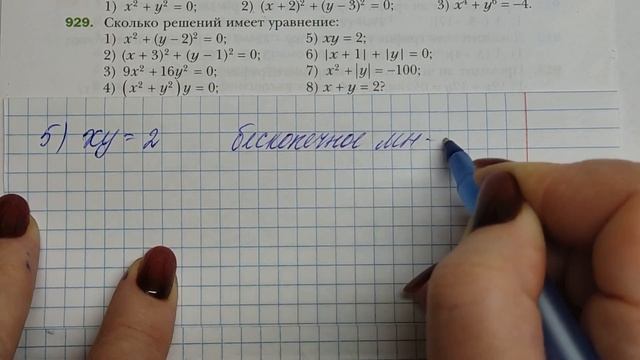 1) x² + y² = 0; 2) (x + 2)² + (y − 3)² = 0; 3) x⁴ + y⁶ = −4.
929. Сколько решений имеет уравнение:
1) x² + (y − 2)² = 0; 5) xy = 2;
2) (x + 3)² + (y − 1)² = 0; 6) |x + 1| + |y| = 0;
3) 9x² + 16y² = 0; 7) x² + |y| = −100;
4) (x² + y²)y = 0; 8) x + y = 2?
5) xy = 2 бесконечное мн-